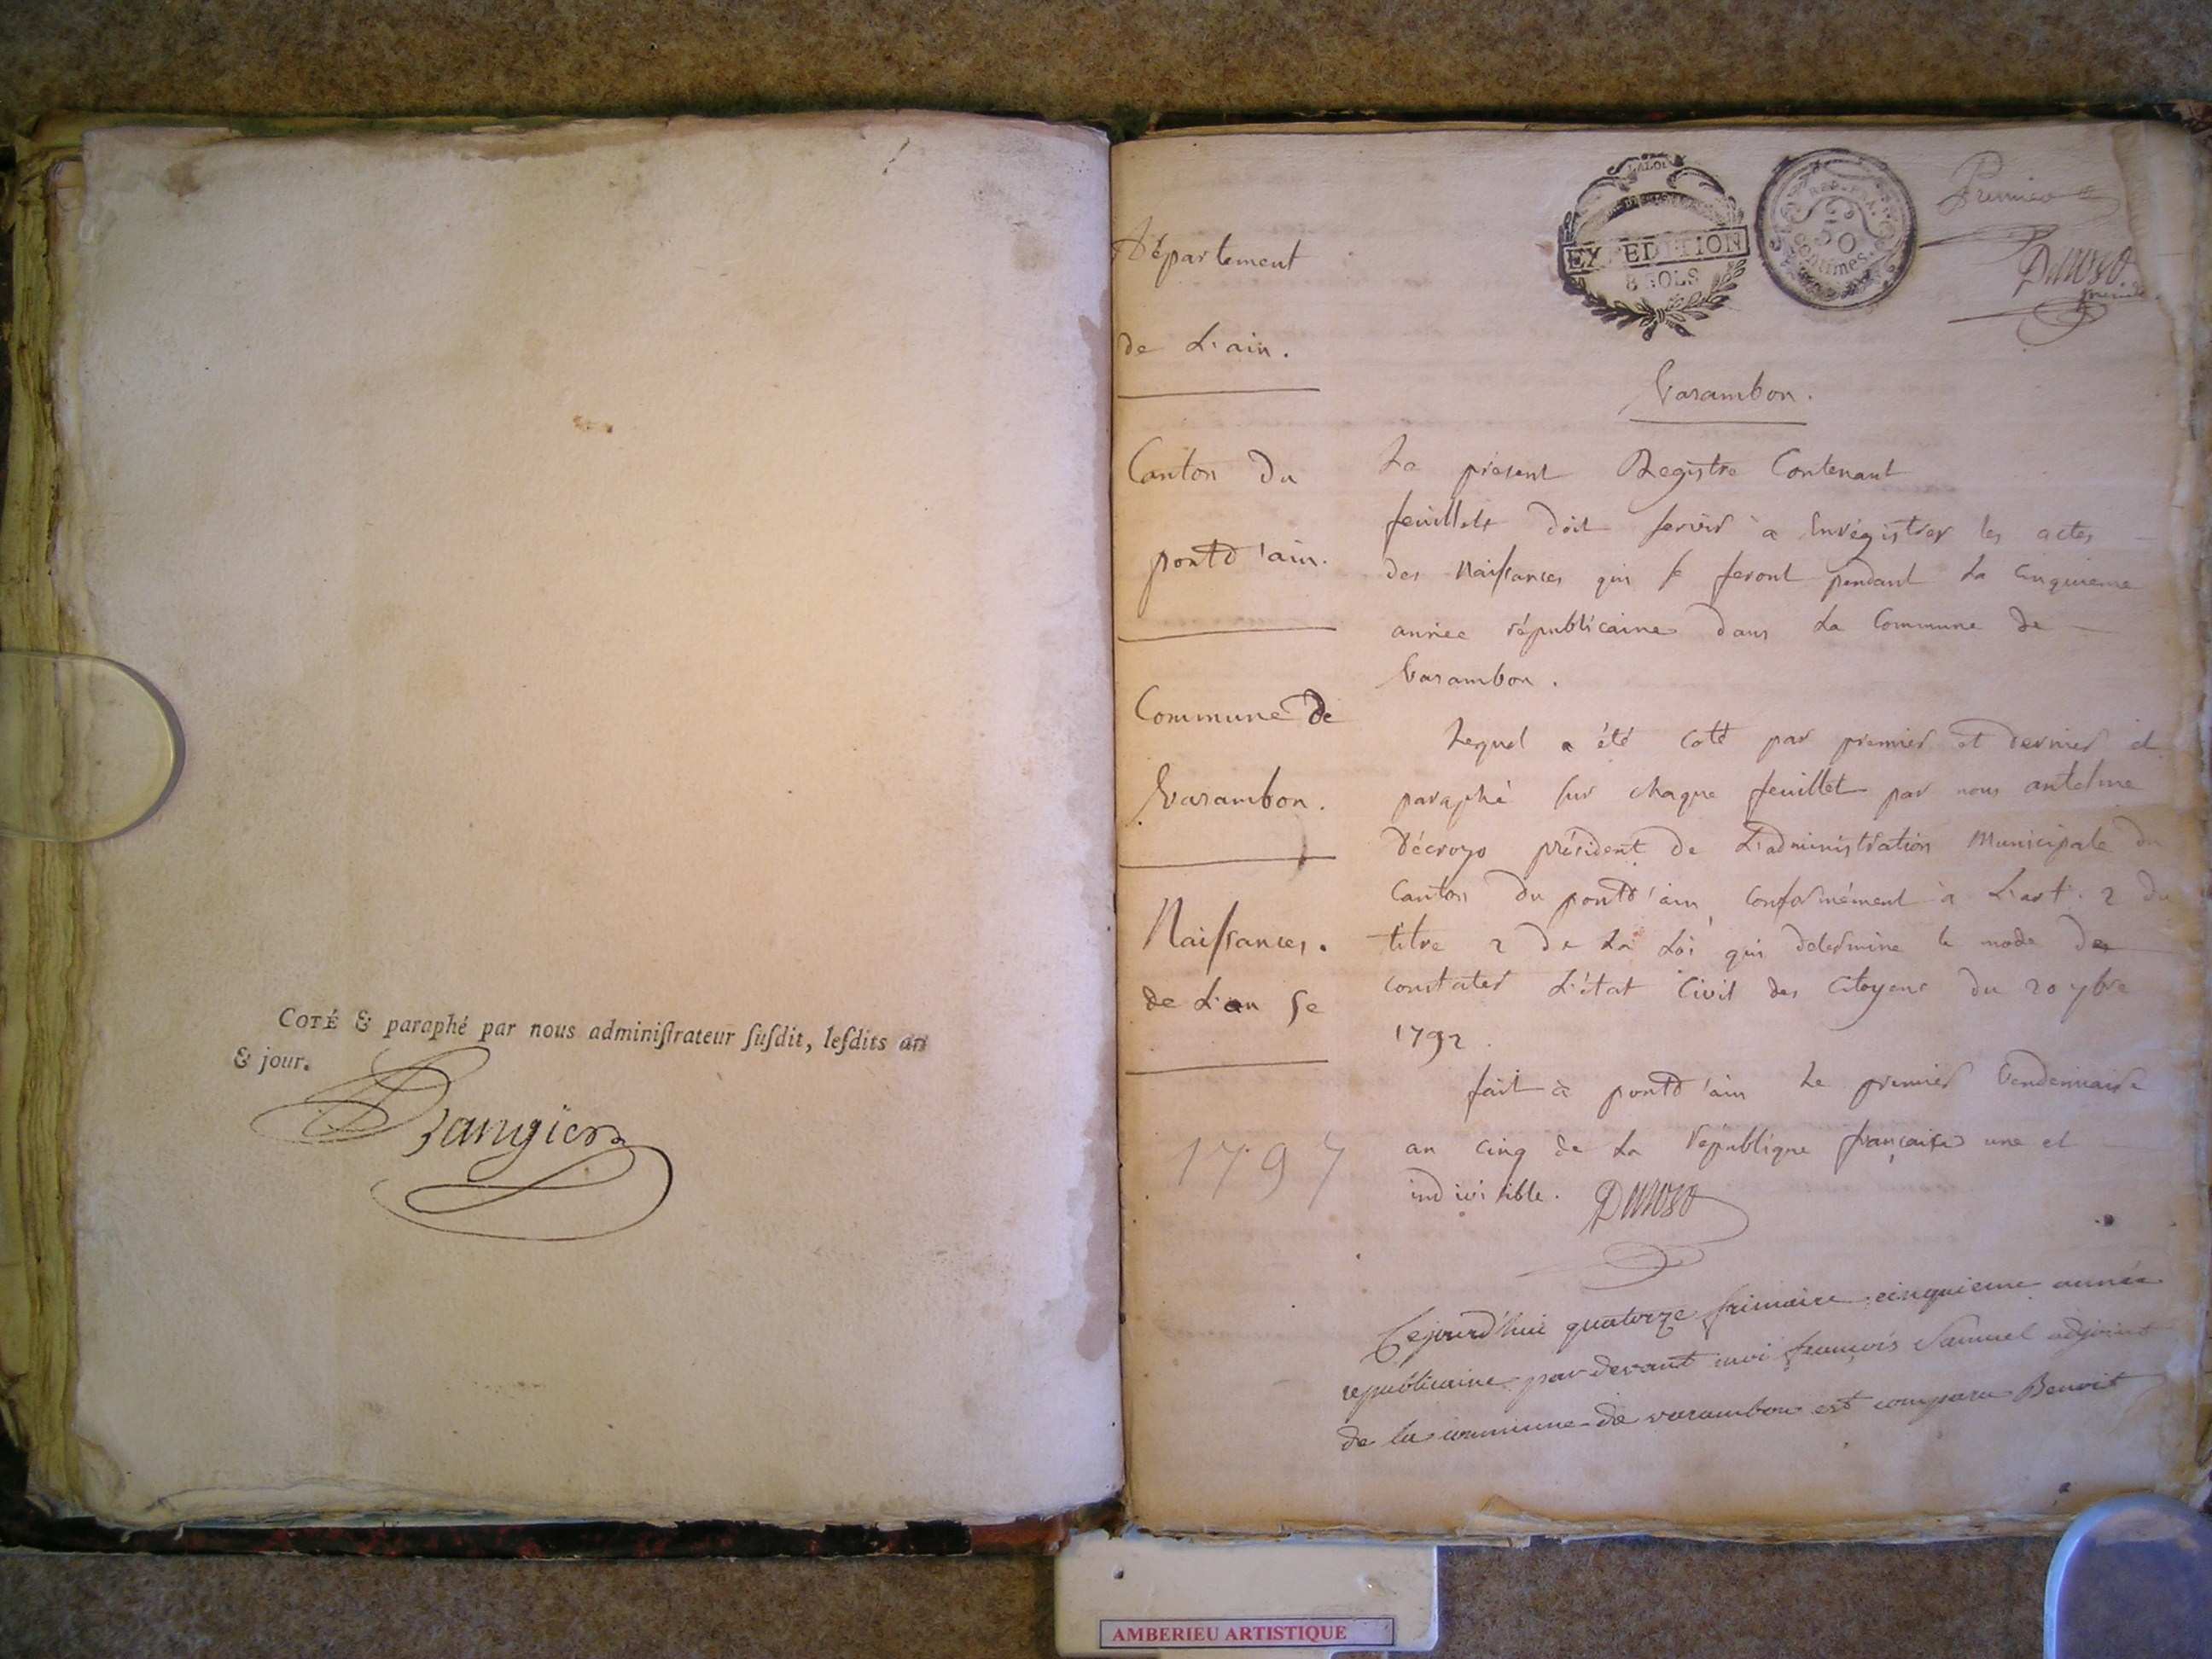 COTÉ & paraphé par nous adminiſtrateur ſuſdit, leſdits an
& jour.
Département
de L'ain.
Canton du
pontd'ain.
Commune de
Varambon.
Naiſsances.
de L'an 5e
1797
LA LOI
EXPEDITION
8 SOLS
REP. FRA.
50
Centimes.
Premier
Varambon.
Le présent Registre Contenant
feuillets doit servir à Enrégistrer les actes
des Naiſsances qui se feront pendant La Cinquieme
année républicaine dans La Commune de
Varambon.
Lequel a été coté par premier et dernier et
paraphé sur chaque feuillet par nous antelme
président de L'administration Municipale du
Canton du pontd'ain, conformément à L'art. 2 du
titre 2 de La Loi qui détermine le mode de
constater L'état Civil des Citoyens du 20 7bre
1792.
fait à pontd'ain Le premier Vendemiaire
an cinq de La République française une et
indivisible.
Cejourd'hui quatorze frimaire cinquieme année
republicaine par devant moi françois Samuel adjoint
de la commune de varambon est comparu Benoit
AMBERIEU ARTISTIQUE